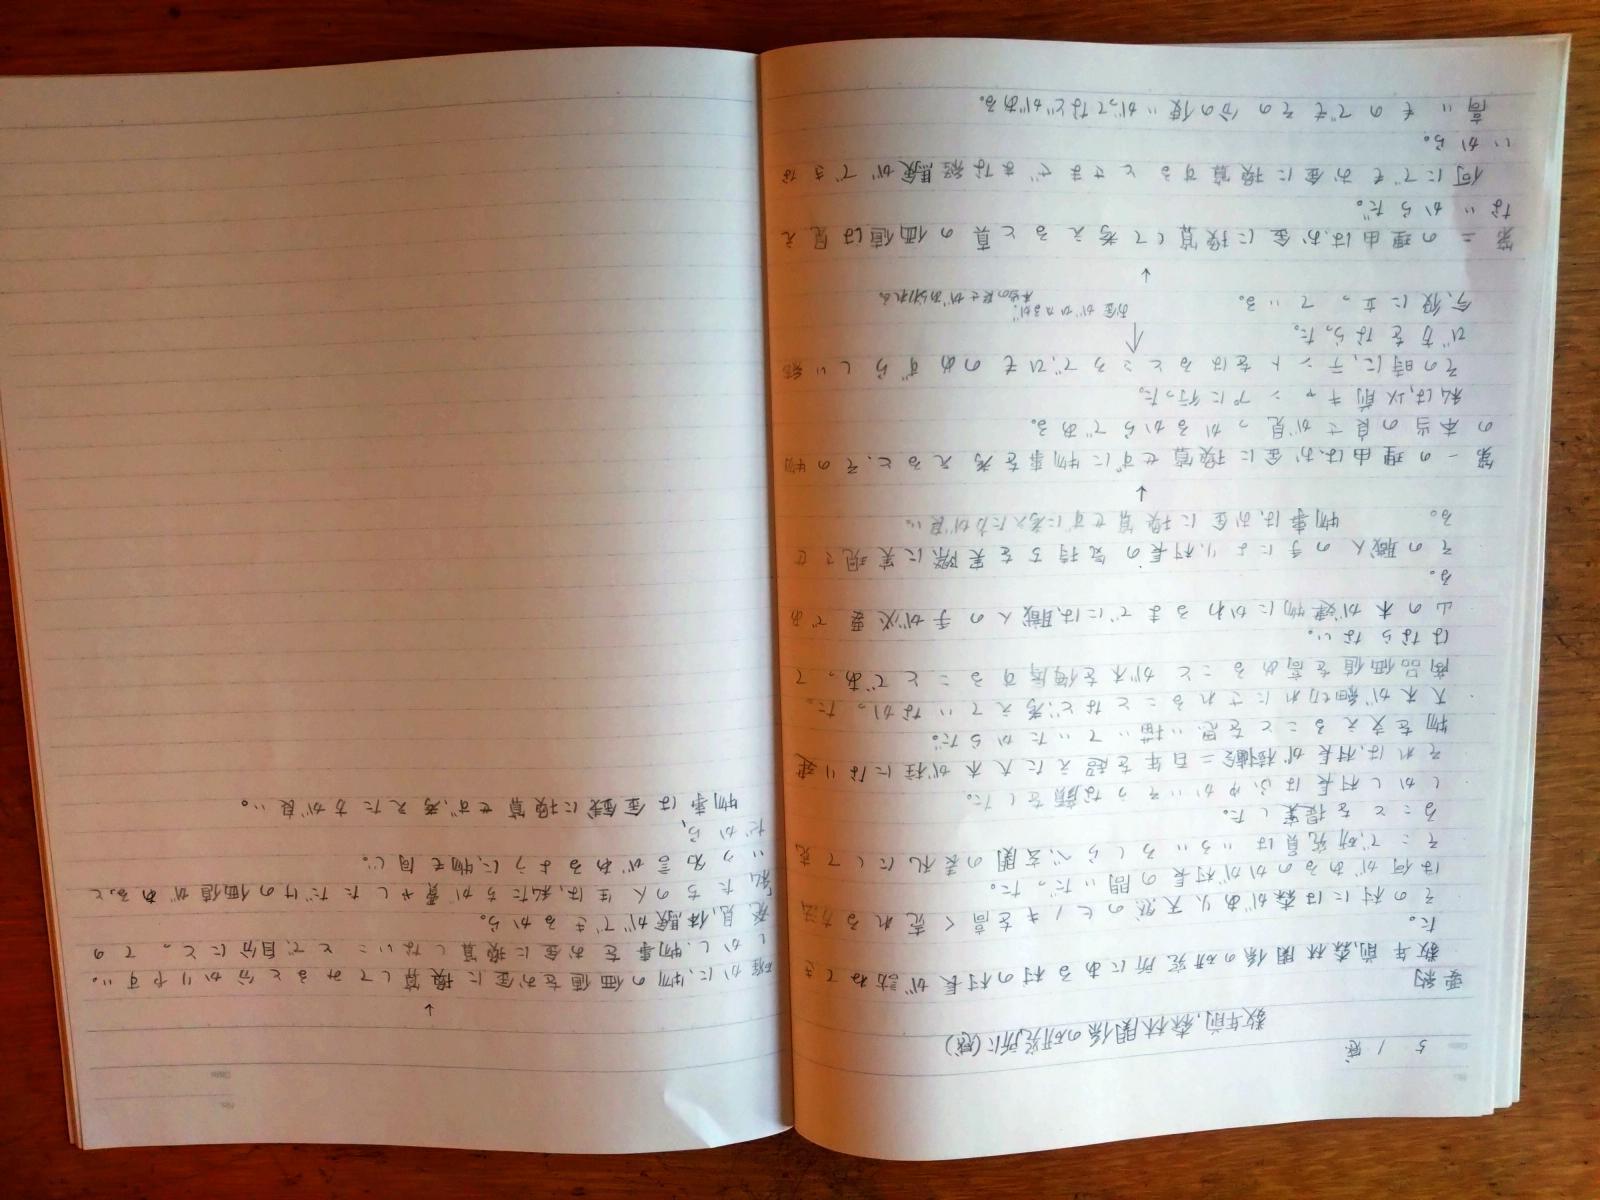 No.
Date
5 / 感
数年前、森林関係の研究所に(感)
要約
数年前、森林関係の研究所にある村の村長が訪ねてき
た。
その村には森があり天然のヒノキを高く売れる方法
は何があるのかが村長の問いだった。
そこで、研究員はいろいろくらべ、玄関の表札にして売
ることを提案した。
しかし村長はふゆかいそうな顔をした。
それは、村長が樹齢二百年を超えた大木が柱になり建
物を支えることを思い描いていたからだ。
大木が細切れにされることなど、考えていなかった。
商品価値を高めることが木を侮辱することであって
はならない。
山の木が建物にかわるまでには、職人の手が必要であ
る。
その職人の手により、村長の気持ちを実際に実現でき
る。 物事は、お金に換算せずに考えた方が良い。
↓
第一の理由は、お金に換算せずに物事を考えると、その物
の本当の良さが見つかるからである。
私は、以前キャンプに行った。
その時に、テントをはるところで、ひものめずらしい結
び方をならった。
今、役に立っている。
お金がかかるが、
本当の良さがあらわれる
↓
第二の理由は、お金に換算して考えると真の価値は見え
ないからだ。
何にでもお金に換算するとさまざまな経験ができな
いから。
高いものでもその分の使いがってなどがある。
No.
Date
↓
確かに、物の価値をお金に換算してみると分かりやすい。
しかし、物事をお金に換算しないことで、自分にとっての
発見、体験ができるから。
「私たちの人生は、私たちが費やしただけの価値がある」と
いう名言があるように、物も同じ。
だから、
物事は金銭に換算せず、考えた方が良い。